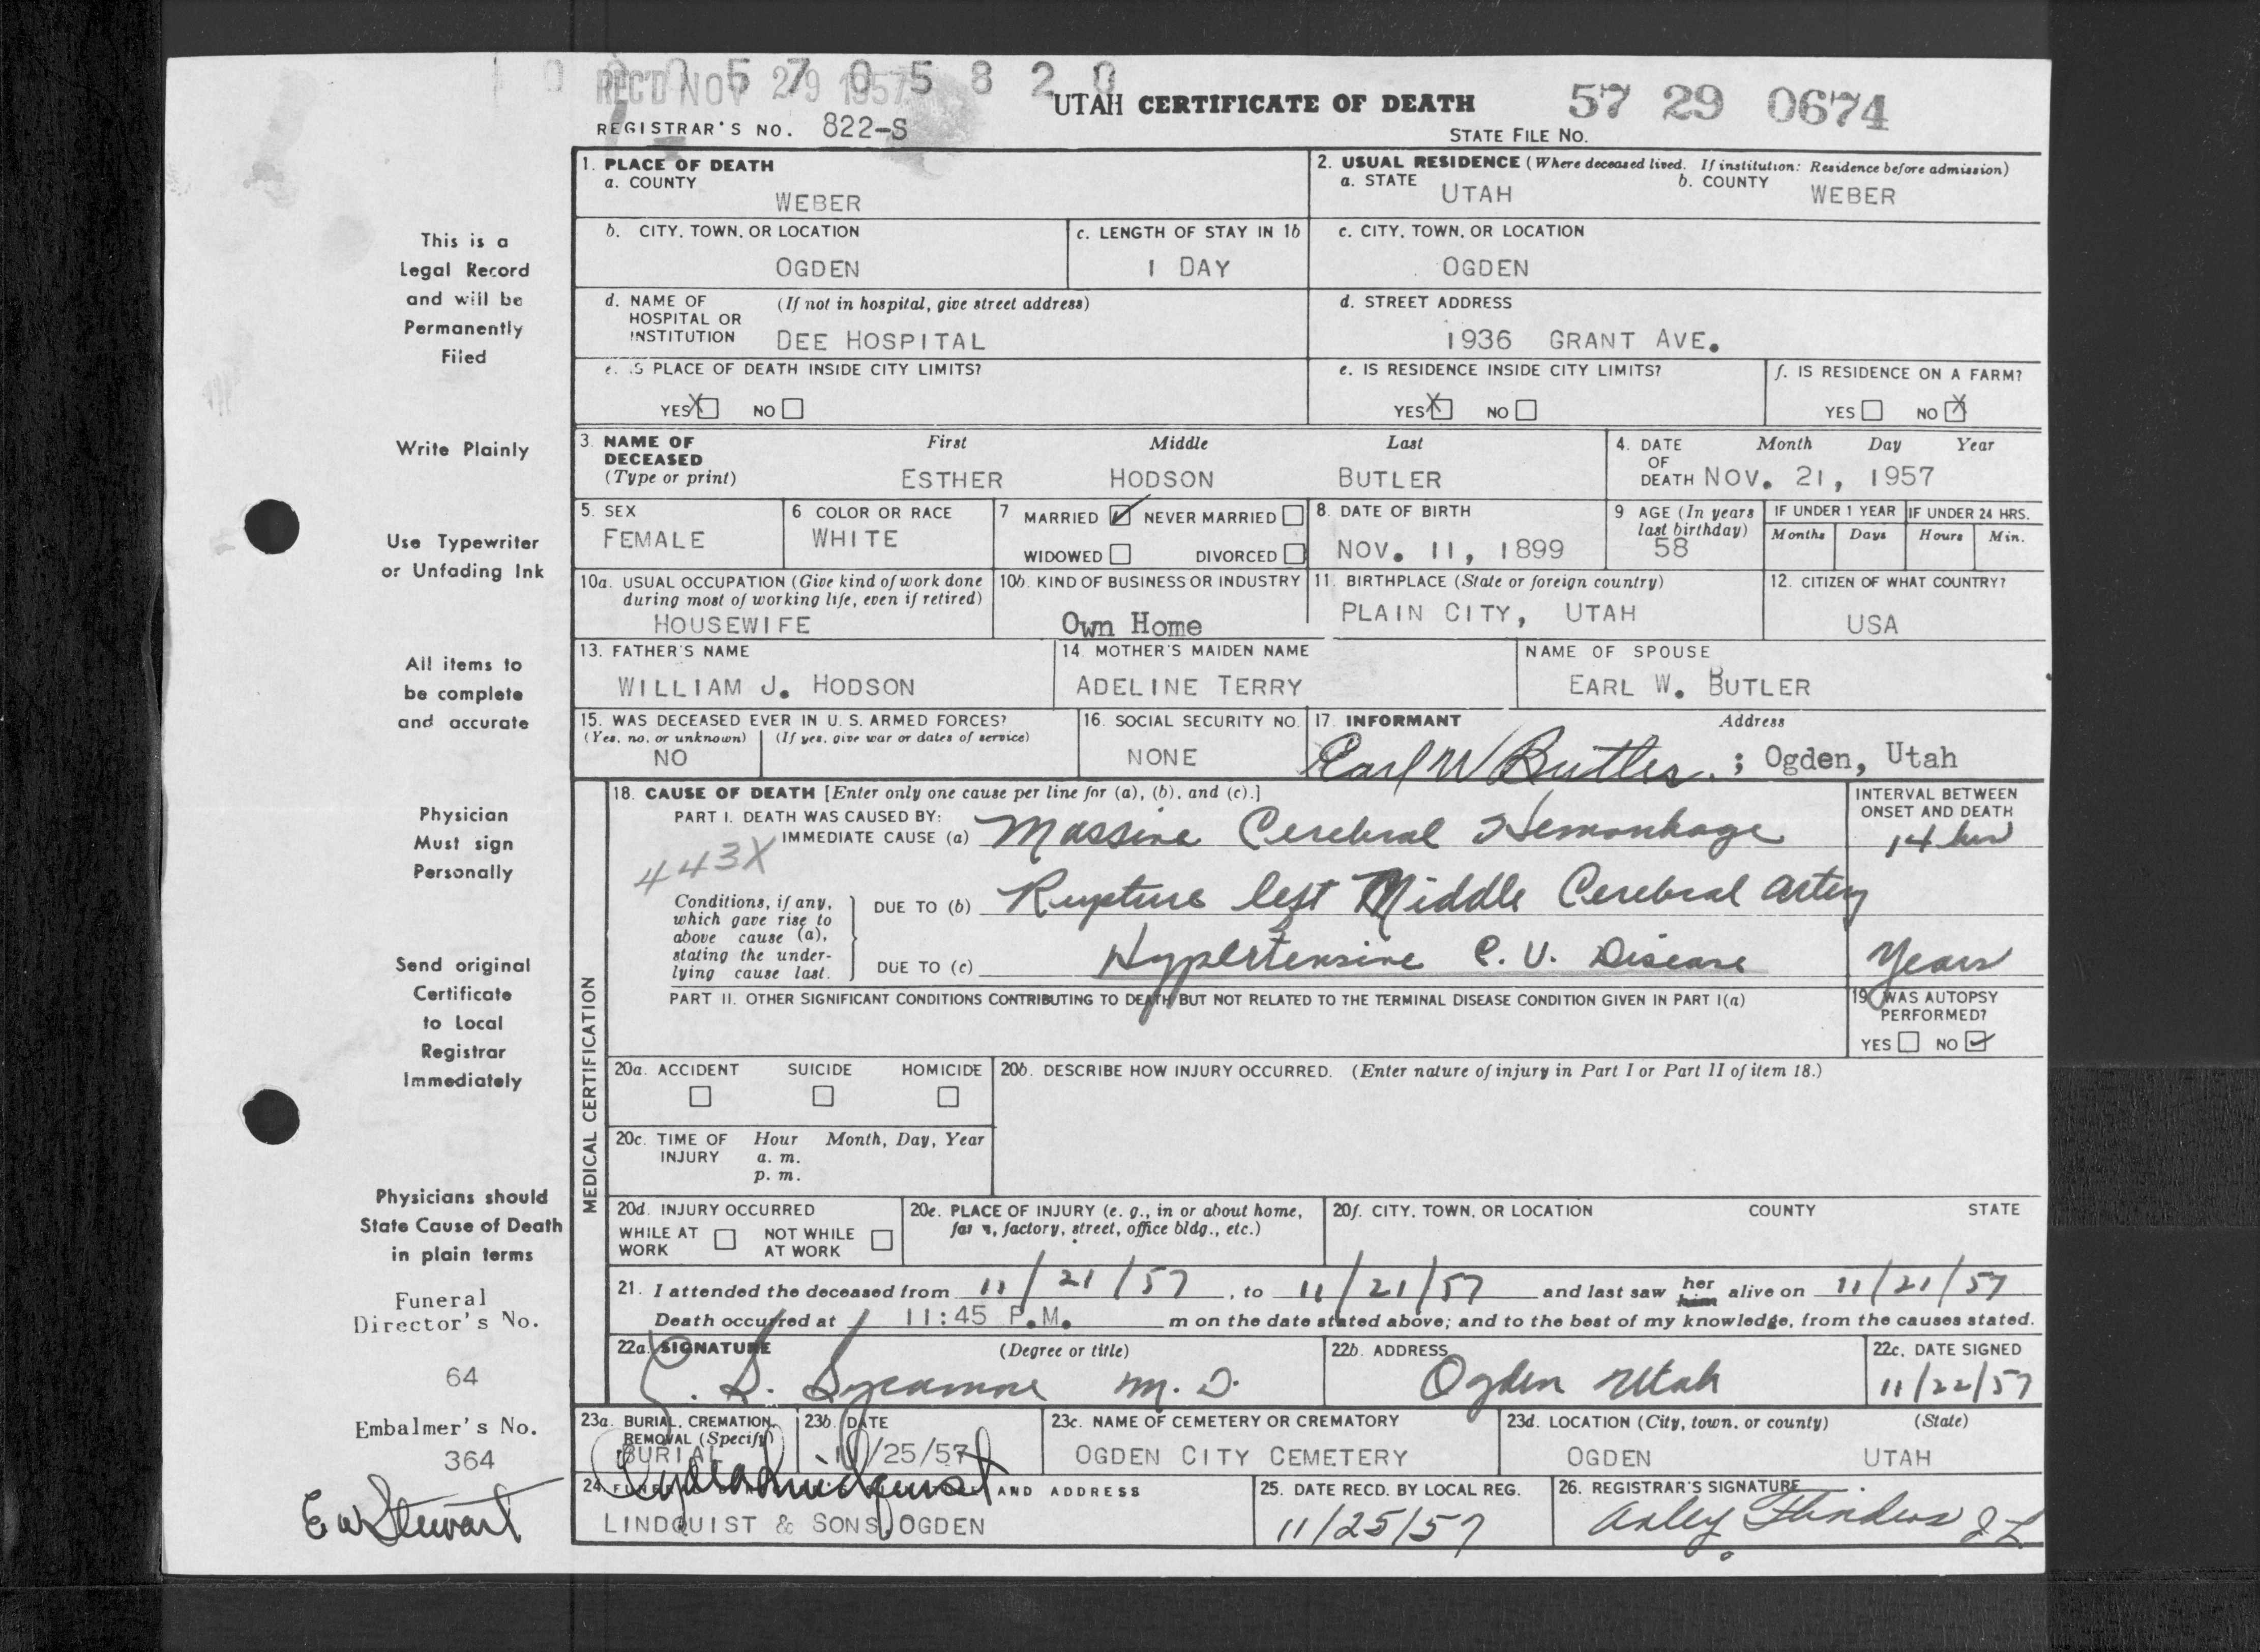 0 0 0 5 7 0 5 8 2 0
REC'D NOV 29 1957
UTAH CERTIFICATE OF DEATH
57 29 0674
REGISTRAR'S NO. 822-S
STATE FILE NO.
1. PLACE OF DEATH
a. COUNTY
WEBER
2. USUAL RESIDENCE (Where deceased lived. If institution: Residence before admission)
a. STATE UTAH b. COUNTY WEBER
b. CITY, TOWN, OR LOCATION
OGDEN
c. LENGTH OF STAY IN 1b
1 DAY
c. CITY, TOWN, OR LOCATION
OGDEN
d. NAME OF (If not in hospital, give street address)
HOSPITAL OR
INSTITUTION DEE HOSPITAL
d. STREET ADDRESS
1936 GRANT AVE.
e. IS PLACE OF DEATH INSIDE CITY LIMITS?
YES X NO
e. IS RESIDENCE INSIDE CITY LIMITS?
YES X NO
f. IS RESIDENCE ON A FARM?
YES NO X
3. NAME OF DECEASED (Type or print)
First Middle Last
ESTHER HODSON BUTLER
4. DATE OF DEATH
Month Day Year
NOV. 21, 1957
5. SEX
FEMALE
6 COLOR OR RACE
WHITE
7 MARRIED ✓ NEVER MARRIED
WIDOWED DIVORCED
8. DATE OF BIRTH
NOV. 11, 1899
9 AGE (In years last birthday)
58
IF UNDER 1 YEAR
Months Days
IF UNDER 24 HRS.
Hours Min.
10a. USUAL OCCUPATION (Give kind of work done
during most of working life, even if retired)
HOUSEWIFE
10b. KIND OF BUSINESS OR INDUSTRY
Own Home
11. BIRTHPLACE (State or foreign country)
PLAIN CITY, UTAH
12. CITIZEN OF WHAT COUNTRY?
USA
13. FATHER'S NAME
WILLIAM J. HODSON
14. MOTHER'S MAIDEN NAME
ADELINE TERRY
NAME OF SPOUSE
EARL W. BUTLER
15. WAS DECEASED EVER IN U. S. ARMED FORCES?
(Yes, no, or unknown) (If yes, give war or dates of service)
NO
16. SOCIAL SECURITY NO.
NONE
17. INFORMANT Address
Earl W Butler ; Ogden, Utah
MEDICAL CERTIFICATION
18. CAUSE OF DEATH [Enter only one cause per line for (a), (b), and (c).]
INTERVAL BETWEEN
ONSET AND DEATH
PART I. DEATH WAS CAUSED BY:
IMMEDIATE CAUSE (a) Massive Cerebral Hemorrhage
14 hrs
443X
Conditions, if any,
which gave rise to
above cause (a),
stating the under-
lying cause last.
DUE TO (b) Rupture left Middle Cerebral artery
DUE TO (c) Hypertensive C. V. Disease
Years
PART II. OTHER SIGNIFICANT CONDITIONS CONTRIBUTING TO DEATH BUT NOT RELATED TO THE TERMINAL DISEASE CONDITION GIVEN IN PART I(a)
19. WAS AUTOPSY
PERFORMED?
YES NO ✓
20a. ACCIDENT SUICIDE HOMICIDE
20b. DESCRIBE HOW INJURY OCCURRED. (Enter nature of injury in Part I or Part II of item 18.)
20c. TIME OF INJURY Hour Month, Day, Year
a. m.
p. m.
20d. INJURY OCCURRED
WHILE AT WORK NOT WHILE AT WORK
20e. PLACE OF INJURY (e. g., in or about home,
farm, factory, street, office bldg., etc.)
20f. CITY, TOWN, OR LOCATION COUNTY STATE
21. I attended the deceased from 11/21/57, to 11/21/57 and last saw her him alive on 11/21/57
Death occurred at 11:45 P.M. m on the date stated above; and to the best of my knowledge, from the causes stated.
22a. SIGNATURE (Degree or title)
M. D.
22b. ADDRESS
Ogden Utah
22c. DATE SIGNED
11/22/57
23a. BURIAL, CREMATION,
REMOVAL (Specify)
BURIAL
23b. DATE
11/25/57
23c. NAME OF CEMETERY OR CREMATORY
OGDEN CITY CEMETERY
23d. LOCATION (City, town, or county) (State)
OGDEN UTAH
24. AND ADDRESS
LINDQUIST & SONS, OGDEN
25. DATE RECD. BY LOCAL REG.
11/25/57
26. REGISTRAR'S SIGNATURE
This is a
Legal Record
and will be
Permanently
Filed
Write Plainly
Use Typewriter
or Unfading Ink
All items to
be complete
and accurate
Physician
Must sign
Personally
Send original
Certificate
to Local
Registrar
Immediately
Physicians should
State Cause of Death
in plain terms
Funeral
Director's No.
64
Embalmer's No.
364
E W Stewart